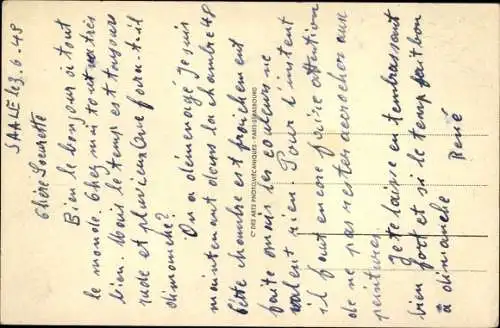 SAALES 13.6.48
Chère Sourette
Bien le bonjour à tout
le monde. Chez moi tout va très
bien. Mais le temps est toujours
rude et pluvieux. Que fera-t-il
dimanche?
On a déménagé je suis
maintenant dans la chambre 48
Cette chambre est fraîchement
faite mais les couleurs ne
valent rien. Pour l'instant
il faut encore faire attention
de ne pas rester accrocher aux
peintures.
Je te laisse en t'embrassant
bien fort et si le temps fait bon
à dimanche
René
Cie DES ARTS PHOTOMÉCANIQUES - PARIS-STRASBOURG